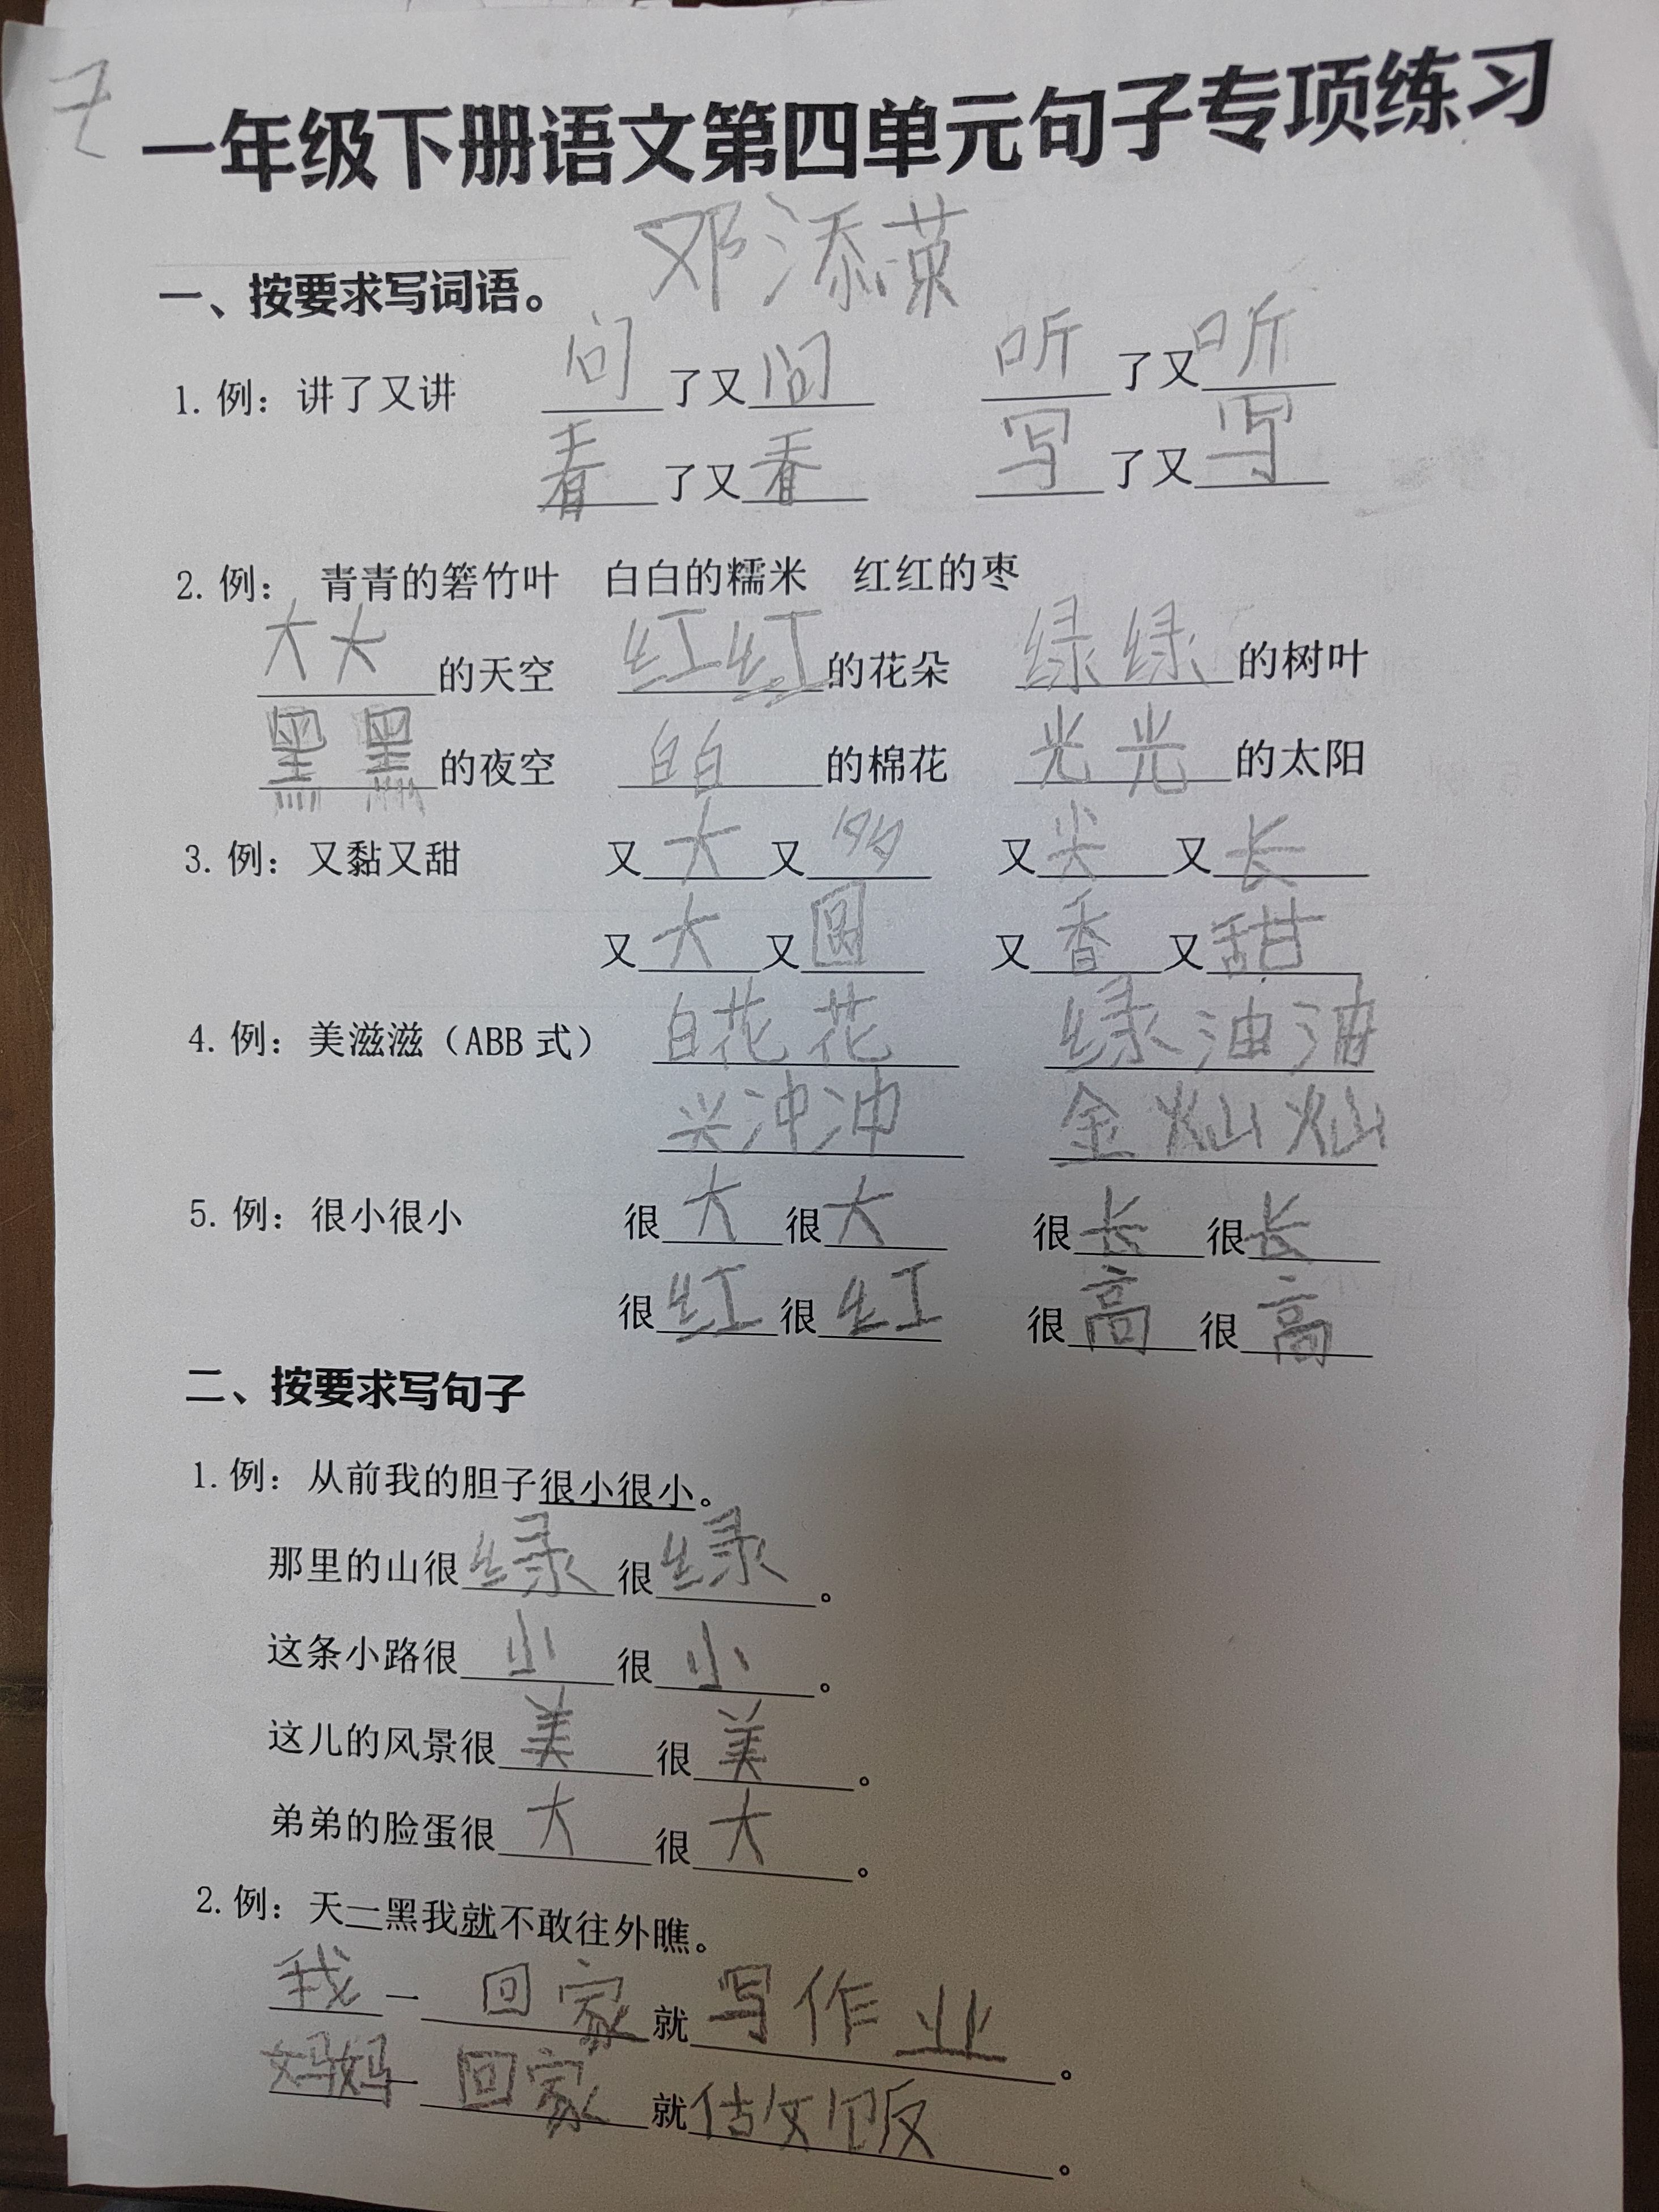 一年级下册语文第四单元句子专项练习
邓添
一、按要求写词语。
1. 例：讲了又讲 问了又问 听了又听
看了又看 写了又写
2. 例： 青青的箬竹叶 白白的糯米 红红的枣
大大的天空 红红的花朵 绿绿的树叶
黑黑的夜空 白白的棉花 光光的太阳
3. 例：又黏又甜 又大又多 又尖又长
又大又圆 又香又甜
4. 例：美滋滋（ABB 式） 白花花 绿油油
兴冲冲 金灿灿
5. 例：很小很小 很大很大 很长很长
很红很红 很高很高
二、按要求写句子
1. 例：从前我的胆子很小很小。
那里的山很绿很绿。
这条小路很小很小。
这儿的风景很美很美。
弟弟的脸蛋很大很大。
2. 例：天一黑我就不敢往外瞧。
我一回家就写作业。
妈妈一回家就做饭。